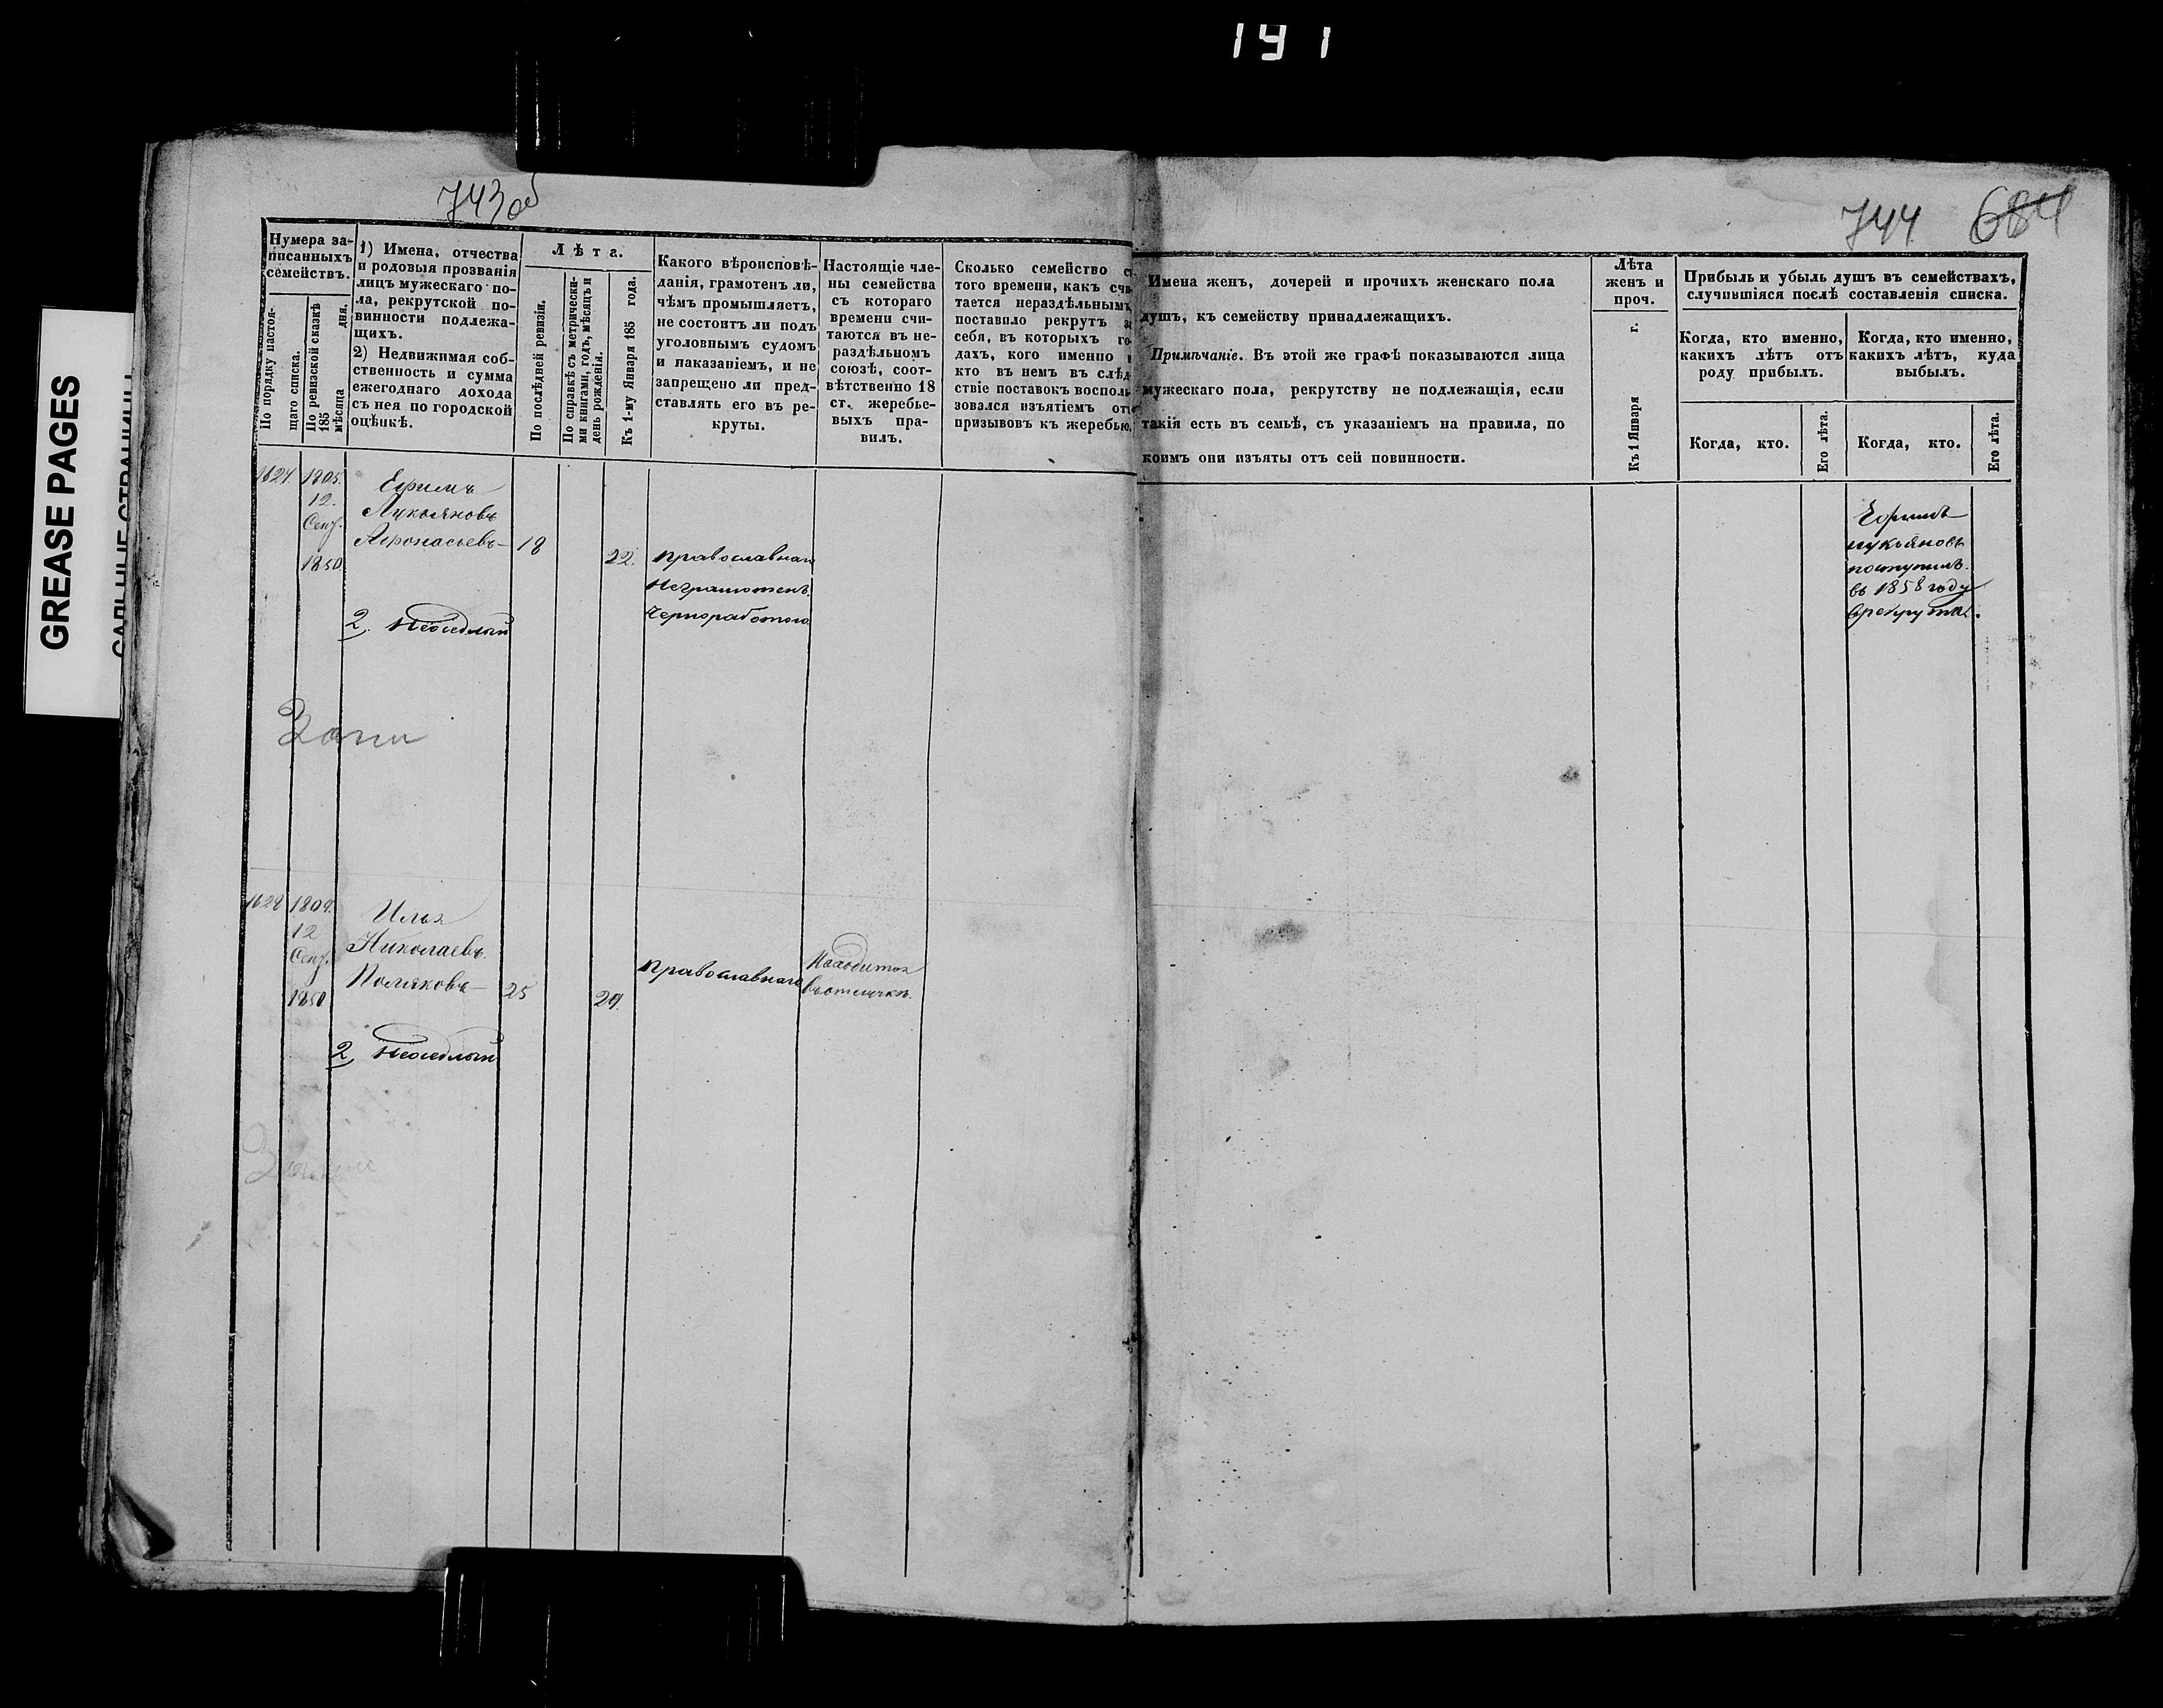 191
GREASE PAGES
743об
744 684
Нумера за-
писанныхъ
семействъ.
По порядку настоя-
щаго списка.
По ревизской сказкѣ
185 мѣсяца дня.
1) Имена, отчества
и родовыя прозванія
лицъ мужескаго по-
ла, рекрутской по-
винности подлежа-
щихъ.
2) Недвижимая соб-
ственность и сумма
ежегоднаго дохода
съ нея по городской
оцѣнкѣ.
Лѣта.
По послѣдней ревизіи.
По справкѣ съ метрически-
ми книгами, годъ, мѣсяцъ и
день рожденія.
Къ 1-му Января 185 года.
Какого вѣроисповѣ-
данія, грамотенъ ли,
чѣмъ промышляетъ,
не состоитъ ли подъ
уголовнымъ судомъ
и наказаніемъ, и не
запрещено ли пред-
ставлять его въ ре-
круты.
Настоящіе чле-
ны семейства
съ котораго
времени счи-
таются въ не-
раздѣльномъ
союзѣ, соот-
вѣтственно 18
ст. жеребье-
выхъ пра-
вилъ.
Сколько семейство съ
того времени, какъ счи-
тается нераздѣльнымъ,
поставило рекрутъ за
себя, въ которыхъ го-
дахъ, кого именно и
кто въ немъ въ слѣд-
ствіе поставокъ восполь-
зовался изъятіемъ отъ
призывовъ къ жеребью.
Имена женъ, дочерей и прочихъ женскаго пола
душъ, къ семейству принадлежащихъ.
Примѣчаніе. Въ этой же графѣ показываются лица
мужескаго пола, рекрутству не подлежащія, если
такія есть въ семьѣ, съ указаніемъ на правила, по
коимъ они изъяты отъ сей повинности.
Лѣта
женъ и
проч.
Къ 1 Января г.
Прибыль и убыль душъ въ семействахъ,
случившіяся послѣ составленія списка.
Когда, кто именно,
какихъ лѣтъ отъ
роду прибылъ.
Когда, кто.
Его лѣта.
Когда, кто именно,
какихъ лѣтъ, куда
выбылъ.
Когда, кто.
Его лѣта.
1627. 1805.
12.
Сент.
1850.
Ефимъ
Лукьяновъ
Афонасьевъ
18
22.
Православнаго
Неграмотенъ.
Чернорабочаго
2. Неоседлый
Ефимъ
Лукьяновъ
поступилъ
въ 1858 году
врекруты.
1628 1809.
12
Сент.
1850
Илья
Николаевъ
Поляковъ
25
29.
Православнаго
Находится
въ отлучкѣ.
2. Неоседлый